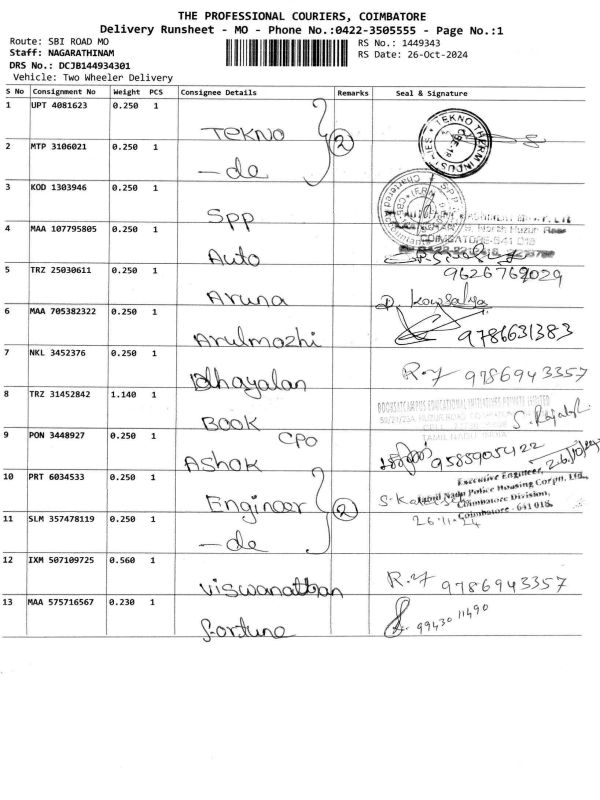 THE PROFESSIONAL COURIERS, COIMBATORE
Delivery Runsheet - MO - Phone No.:0422-3505555 - Page No.:1
Route: SBI ROAD MO
RS No.: 1449343
Staff: NAGARATHINAM
RS Date: 26-Oct-2024
DRS No.: DCJB144934301
Vehicle: Two Wheeler Delivery
S No Consignment No Weight PCS Consignee Details Remarks Seal & Signature
1 UPT 4081623 0.250 1
TEKNO
2
TEKNO THERM INDUSTRIES
2 MTP 3106021 0.250 1
-do
3 KOD 1303946 0.250 1
SPP
4 MAA 107795805 0.250 1
COIMBATORE-641 018
Auto
5 TRZ 25030611 0.250 1
9626769029
Aruna
D. Kowsalya
6 MAA 705382322 0.250 1
Arulmozhi
9786631383
7 NKL 3452376 0.250 1
Dhayalan
R.7 9786943357
8 TRZ 31452842 1.140 1
BOOK
TAMIL NADU INDIA
9 PON 3448927 0.250 1
CPO
ASHOK
9585905422
10 PRT 6034533 0.250 1
Engineer
2
Executive Engineer,
Tamil Nadu Police Housing Corpn. Ltd.,
Coimbatore Division,
Coimbatore - 641 018.
11 SLM 357478119 0.250 1
26.11.24
-do
12 IXM 507109725 0.560 1
Viswanathan
R.7 9786943357
13 MAA 575716567 0.230 1
fortune
99430 11490